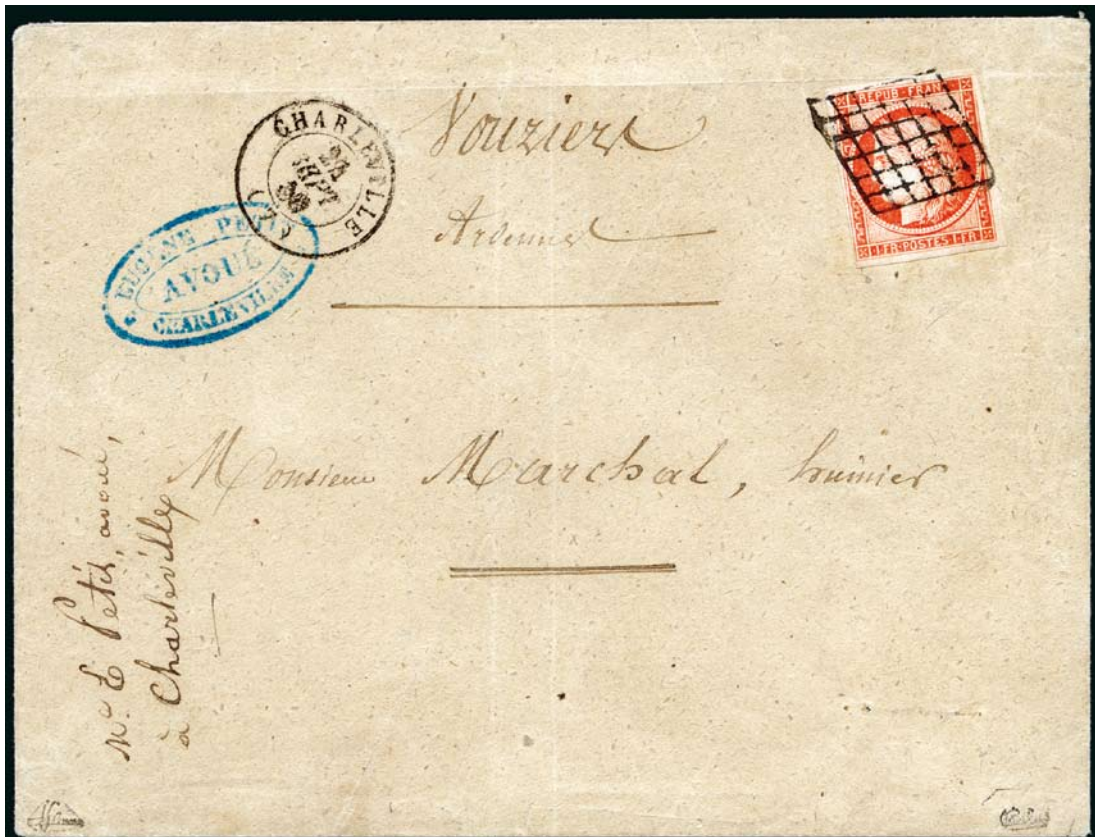 CHARLEVILLE
24
SEPT
50
(7)
EUGÈNE PETIT
AVOUÉ
CHARLEVILLE
Vouziers
Ardennes
REPUB FRANC
1 FR POSTES 1 FR
Monsieur Marchal, huissier
Me E Petit, avoué,
à Charleville